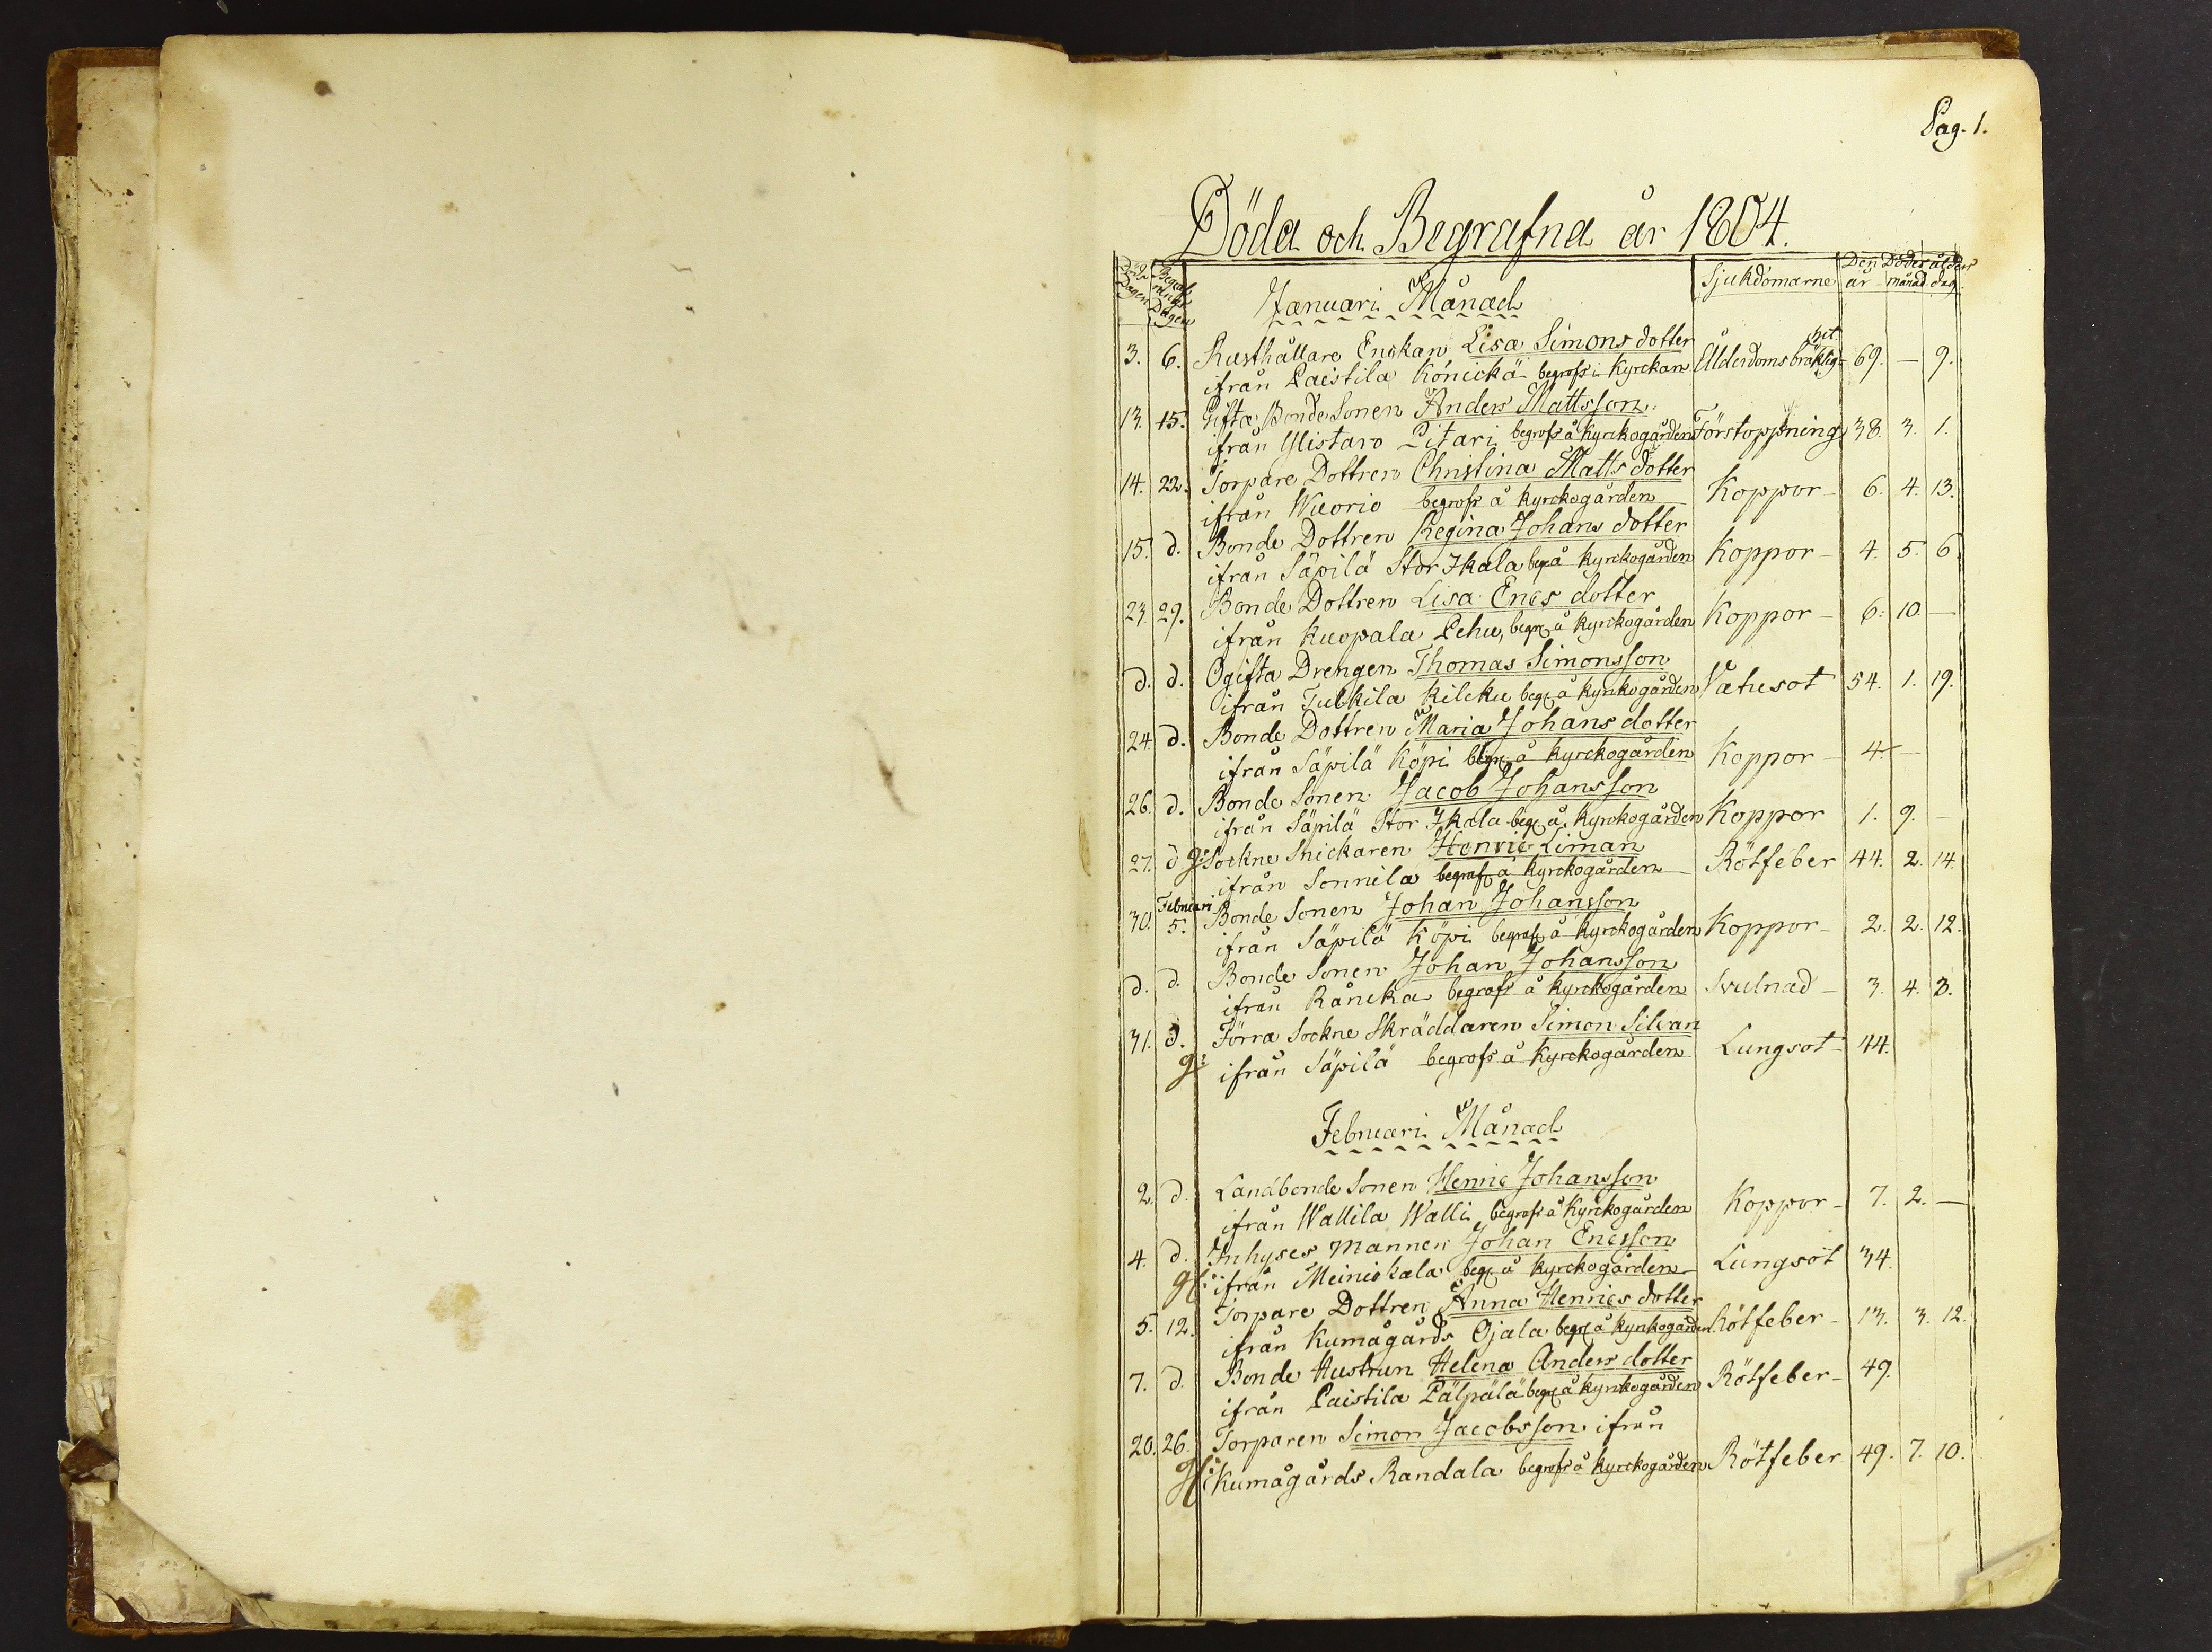 Pag. 1.
Döda och Begrafna år 1804.
Döds Dagen Begrafnings Dagen Januari Månad Sjukdomarne Den Dödes ålder år månad dag
3. 6. Rusthållare Enckan Lisa Simons dotter
ifrån Paistila Könickä begrofs i Kyrckan Ålderdoms bräklighet 69. — 9.
13. 15. Gifta Bonde Sonen Anders Mattsson
ifrån Ylistaro Pitari begrofs å Kyrckogården Förstoppning 38. 3. 1.
14. 22. Torpare Dottren Christina Matts dotter
ifrån Wuorio begrofs å Kyrckogården Koppor 6. 4. 13.
15. d. Bonde Dottren Regina Johans dotter
ifrån Säpilä Stor Ikala beg. å Kyrckogården Koppor 4. 5. 6
23. 29. Bonde Dottren Lisa Erics dotter
ifrån Kuopala Pehu, begr. å Kyrckogården Koppor 6. 10 —
d. d. Ogifta Drengen Thomas Simonsson
ifrån Tulkila Kilcku begr. å Kyrckogården Vatusot 54. 1. 19.
24. d. Bonde Dottren Maria Johans dotter
ifrån Säpilä Köpi begr. å Kyrckogården Koppor 4. —
26. d. Bonde Sonen Jacob Johansson
ifrån Säpilä Stor Ikala begr. å Kyrckogården Koppor 1. 9. —
27. d g: Sockne Snickaren Henric Liman
ifrån Sonnila begraf. å Kyrckogården Rötfeber 44. 2. 14.
30. Februari 5. Bonde Sonen Johan Johansson
ifrån Säpilä Köpi begraf. å Kyrckogården Koppor 2. 2. 12.
d. d. Bonde Sonen Johan Johansson
ifrån Råncka begrafs å Kyrckogården Svulnad 3. 4. 3.
31. d. Förra Sockne Skräddaren Simon Silvan
g: ifrån Säpilä begrofs å Kyrckogården Lungsot 44.
Februari Månad
2. d. Landbonde Sonen Henric Johansson
ifrån Wallila Walli begrofs å Kyrckogården Koppor 7. 2. —
4. d. Inhyses mannen Johan Ericsson
g: ifrån Meiniskala begr. å Kyrckogården Lungsot 34.
5. 12. Torpare Dottren Anna Henrics dotter
ifrån Kumågårds Ojala begr. å Kyrckogården Rötfeber 13. 3. 12.
7. d. Bonde Hustrun Helena Anders dotter
ifrån Paistila Pälpälä begr. å Kyrckogården Rötfeber 49.
20. 26. Torparen Simon Jacobsson ifrån
g: Kumågårds Randala begrofs å Kyrckogården Rötfeber 49. 7. 10.